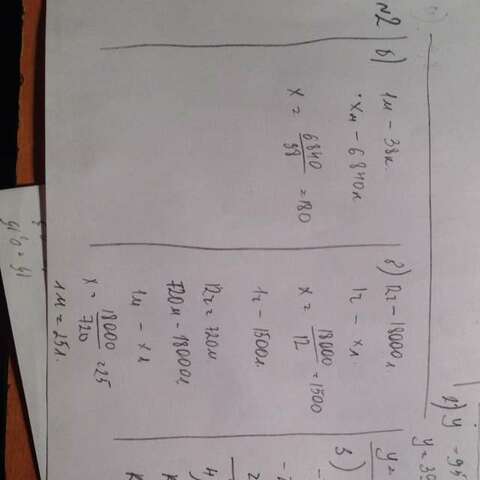 №2
б)
1м – 38л.
xм – 6840л
x = 6840/38 = 180
в) 12ч – 18000л
1ч – xл.
x = 18000/12 = 1500
1ч – 1500л.
12ч = 720м
720м – 18000л.
1м – xл
x = 18000/720 = 25
1м = 25л.
y =
3)
4)
2) y
16 = 0,16